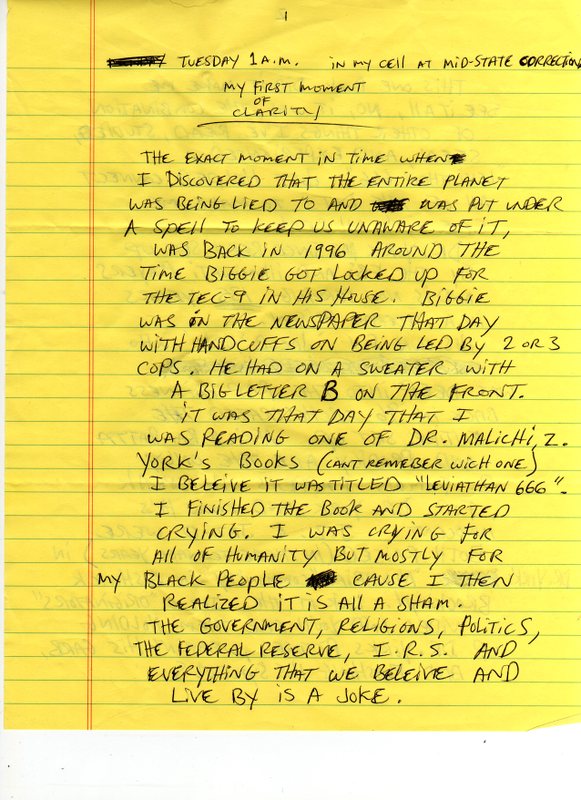 1
TUESDAY 1 A.M. IN MY CELL AT MID-STATE CORRECTION
MY FIRST MOMENT
OF
CLARITY
THE EXACT MOMENT IN TIME WHEN
I DISCOVERED THAT THE ENTIRE PLANET
WAS BEING LIED TO AND WAS PUT UNDER
A SPELL TO KEEP US UNAWARE OF IT,
WAS BACK IN 1996 AROUND THE
TIME BIGGIE GOT LOCKED UP FOR
THE TEC-9 IN HIS HOUSE. BIGGIE
WAS ON THE NEWSPAPER THAT DAY
WITH HANDCUFFS ON BEING LED BY 2 OR 3
COPS. HE HAD ON A SWEATER WITH
A BIG LETTER B ON THE FRONT.
IT WAS THAT DAY THAT I
WAS READING ONE OF DR. MALICHI Z.
YORK'S BOOKS (CANT REMEBER WICH ONE)
I BELEIVE IT WAS TITLED "LEVIATHAN 666".
I FINISHED THE BOOK AND STARTED
CRYING. I WAS CRYING FOR
ALL OF HUMANITY BUT MOSTLY FOR
MY BLACK PEOPLE CAUSE I THEN
REALIZED IT IS ALL A SHAM.
THE GOVERNMENT, RELIGIONS, POLITICS,
THE FEDERAL RESERVE, I.R.S. AND
EVERYTHING THAT WE BELEIVE AND
LIVE BY IS A JOKE.